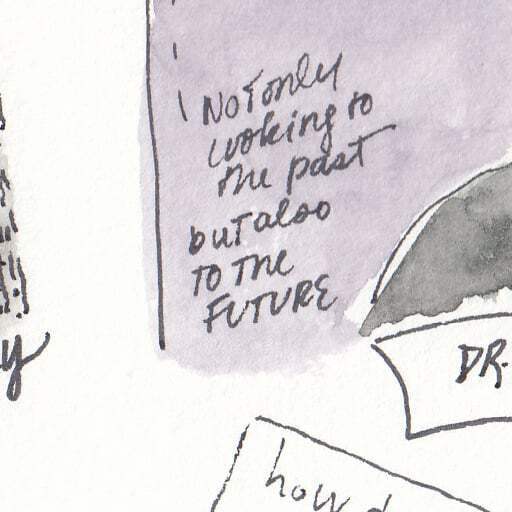 NOT only
looking to
the past
but also
TO THE
FUTURE
y
DR.
how d